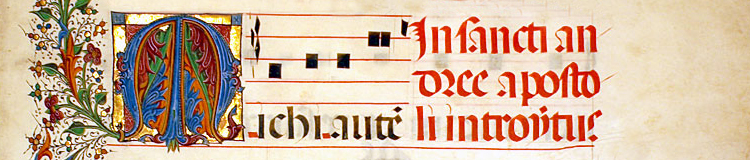 In sancti an
dree aposto
li introÿtus
Michi autē